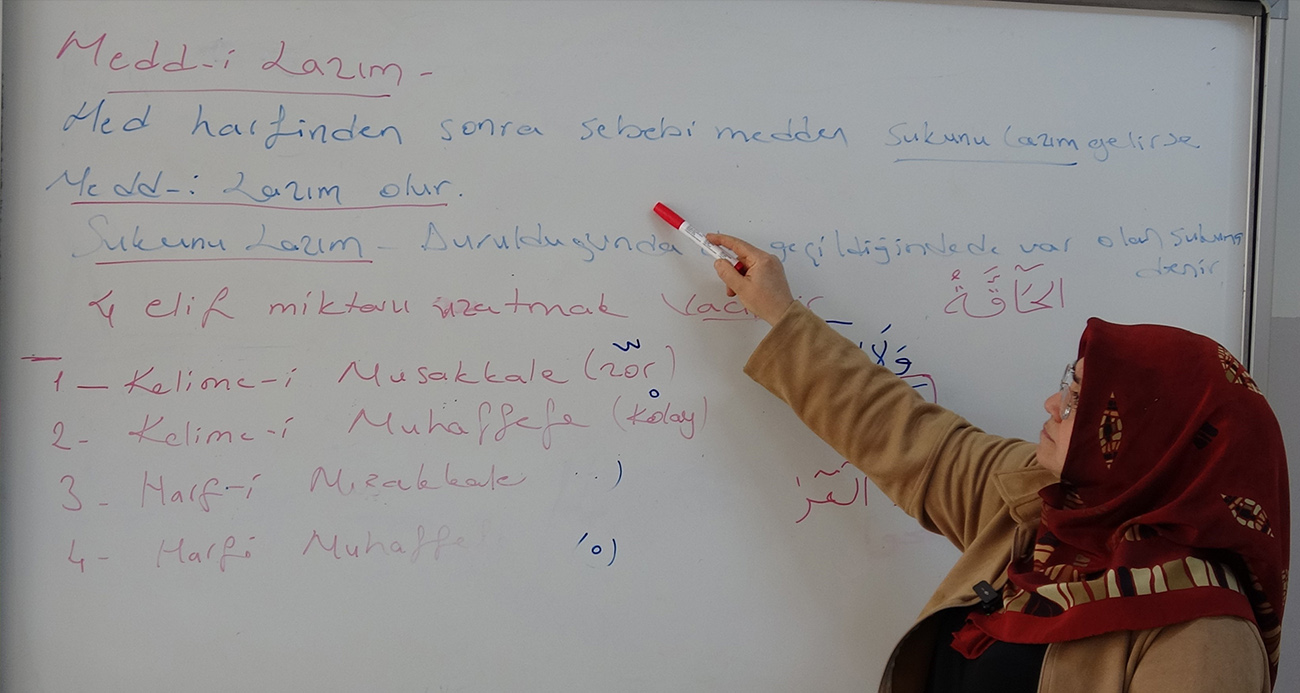 Medd-i Lazım -
Med harfinden sonra sebebi medden sukunu lazım gelirse
Medd-i Lazım olur.
Sukunu Lazım - Durulduğunda geçildiğindede var olan sukuna
denir
4 elif miktarı uzatmak
الحَآقَّةُ
1 - Kelime-i Musakkale (zor)
وَلَا
2 - Kelime-i Muhaffefe (kolay)
3 - Harf-i Musakkale
4 - Harfi Muhaffe